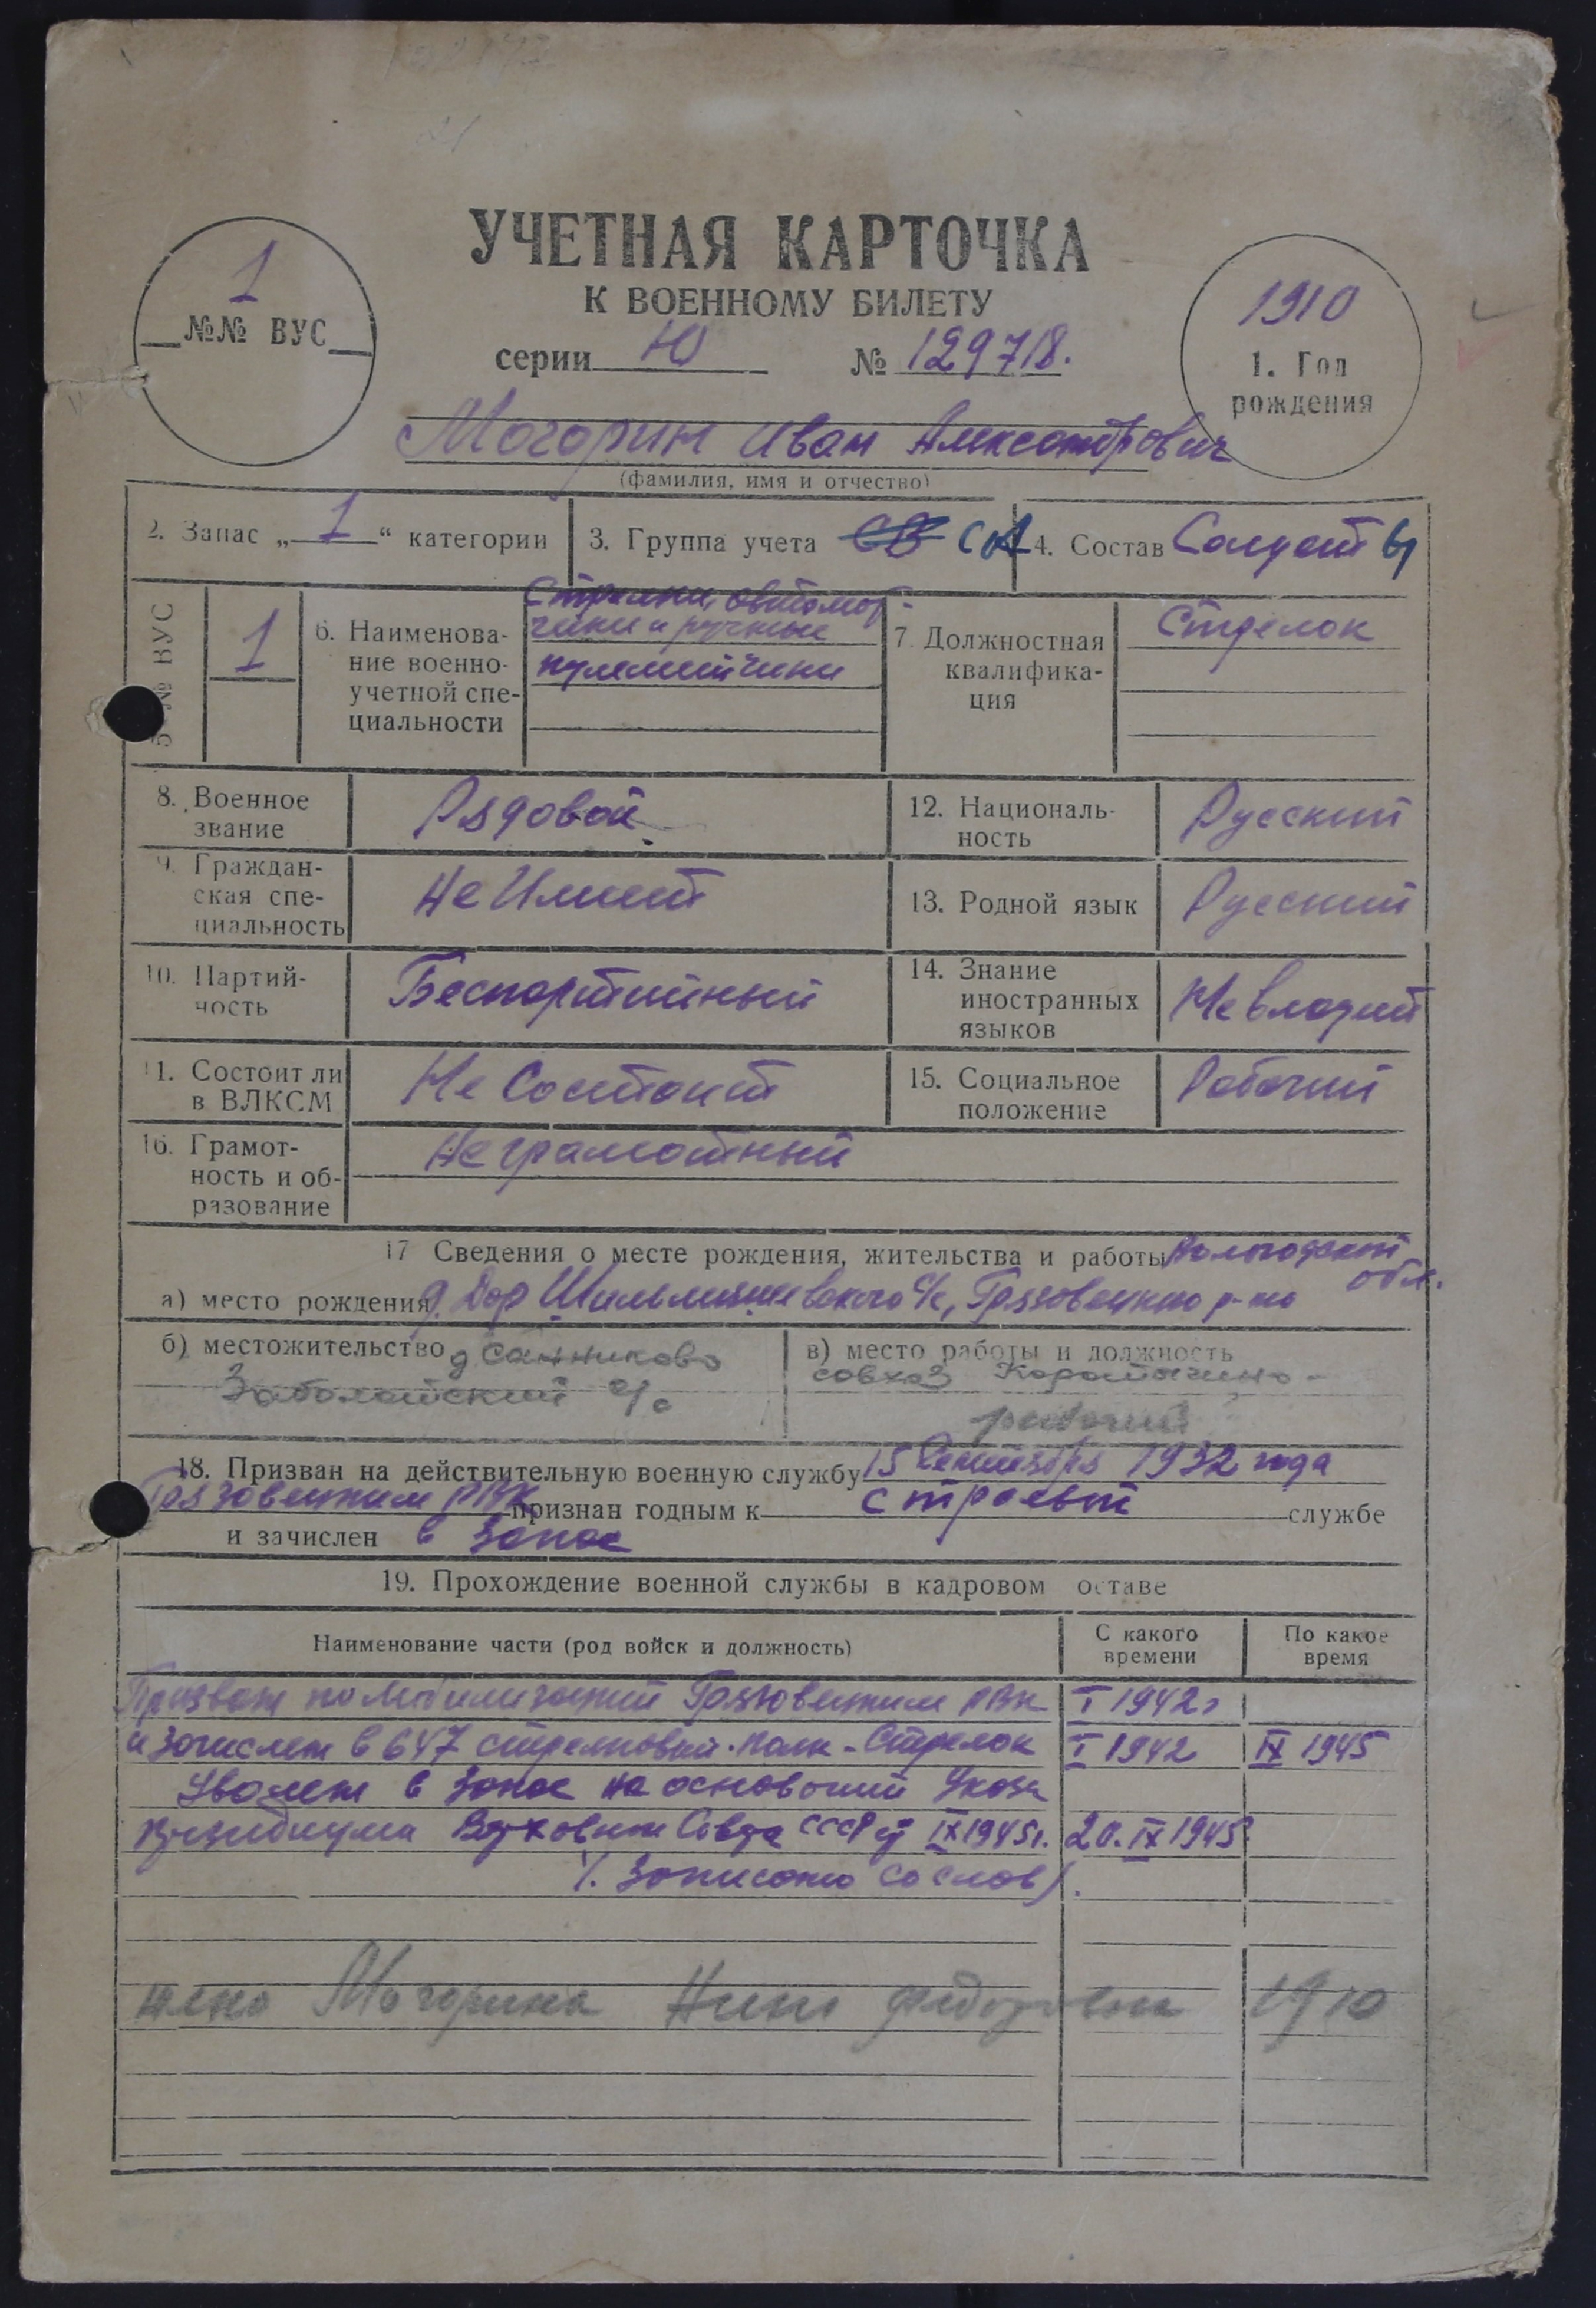 УЧЕТНАЯ КАРТОЧКА
К ВОЕННОМУ БИЛЕТУ
1
№№ ВУС
серии Ю № 129718.
1910
1. Год
рождения
Могорин Иван Александрович
(фамилия, имя и отчество)
2. Запас „ 1 “ категории
3. Группа учета СВ СА
4. Состав Солдаты
5 № ВУС
1
6. Наименова-
ние военно-
учетной спе-
циальности
Стрелки, автомат-
чики и ручные
пулеметчики
7. Должностная
квалифика-
ция
Стрелок
8. Военное
звание
Рядовой
12. Националь-
ность
Русский
9. Граждан-
ская спе-
циальность
Не Имеет
13. Родной язык
Русский
10. Партий-
ность
Беспартийный
14. Знание
иностранных
языков
Не владеет
11. Состоит ли
в ВЛКСМ
Не Состоит
15. Социальное
положение
Рабочий
16. Грамот-
ность и об-
разование
Не грамотный
17 Сведения о месте рождения, жительства и работы Вологодской
обл.
а) место рождения д. Дор с/с, Грязовецкого р-на
б) местожительство д Санниково
Заболотский с/с
в) место работы и должность
совхоз Коротыгино-
рабочий
18. Призван на действительную военную службу 15 Сентября 1932 года
Грязовецким РВК признан годным к строевой службе
и зачислен в запас
19. Прохождение военной службы в кадровом оставе
Наименование части (род войск и должность)
С какого
времени
По какое
время
Призван по Мобилизаций Грязовецким РВК I 1942г
и зачислен в 647 стрелковый. полк - Стрелок I 1942 IX 1945
Уволен в запас на оснований Указа
Президиума Верховного Совета СССР от IX 1945г. 20.IX 1945
(. Записано со слов).
жена Могорина Нина Федоровна 1910